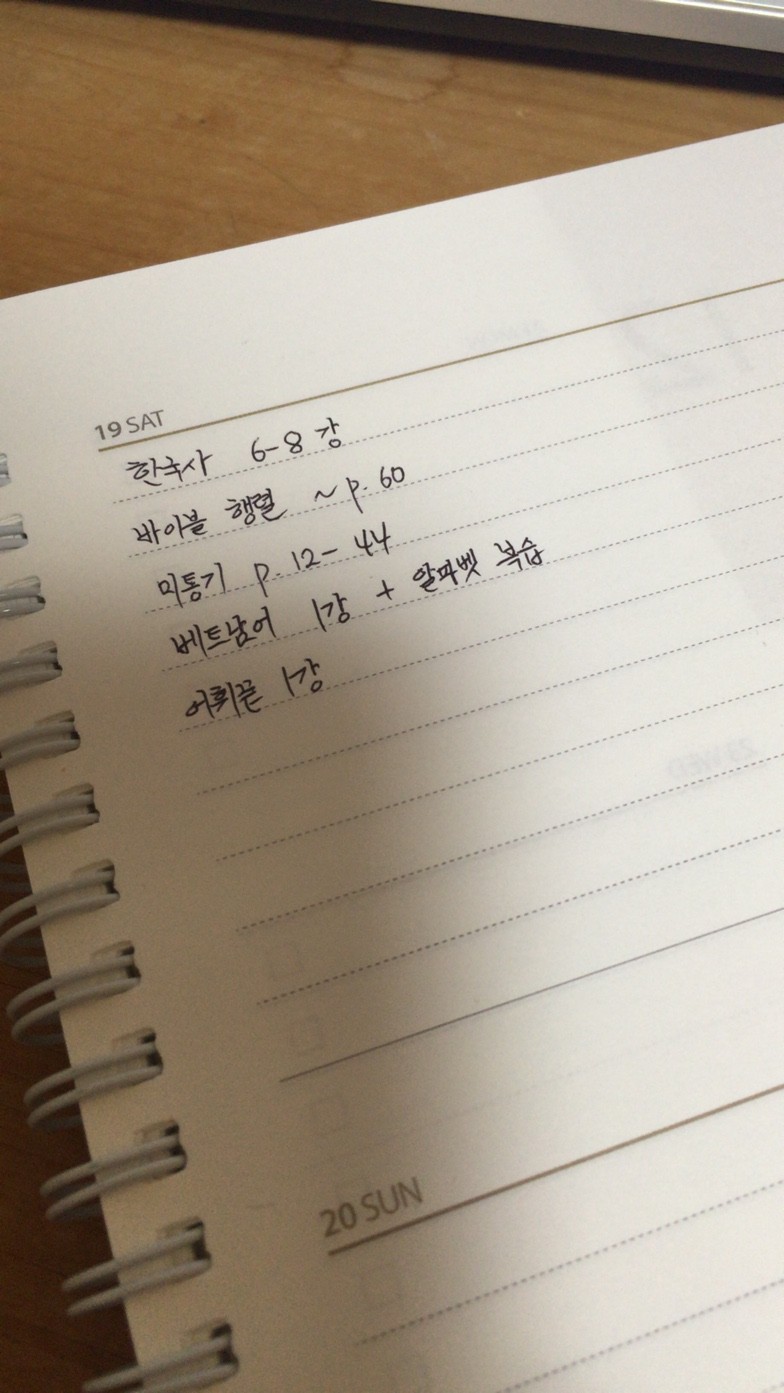 19 SAT
한국사 6-8강
바이블 행렬 ~p.60
미통기 p.12-44
베트남어 1강 + 알파벳 복습
어휘끝 1강
20 SUN